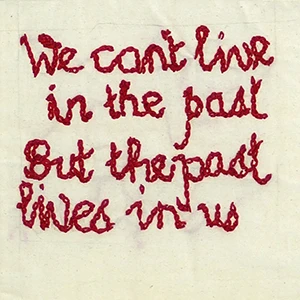 We can't live
in the past
But the past
lives in us